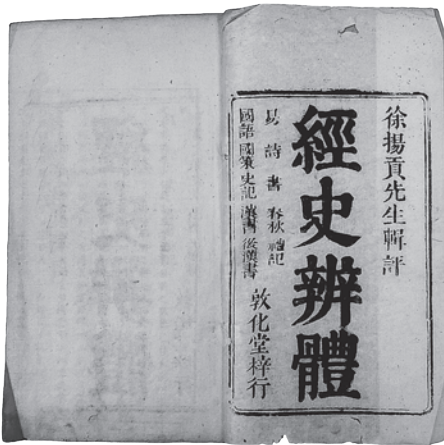 徐揚貢先生輯評
經史辨體
易 詩 書 春秋 禮記
國語 國策 史記 漢書 後漢書
敦化堂梓行